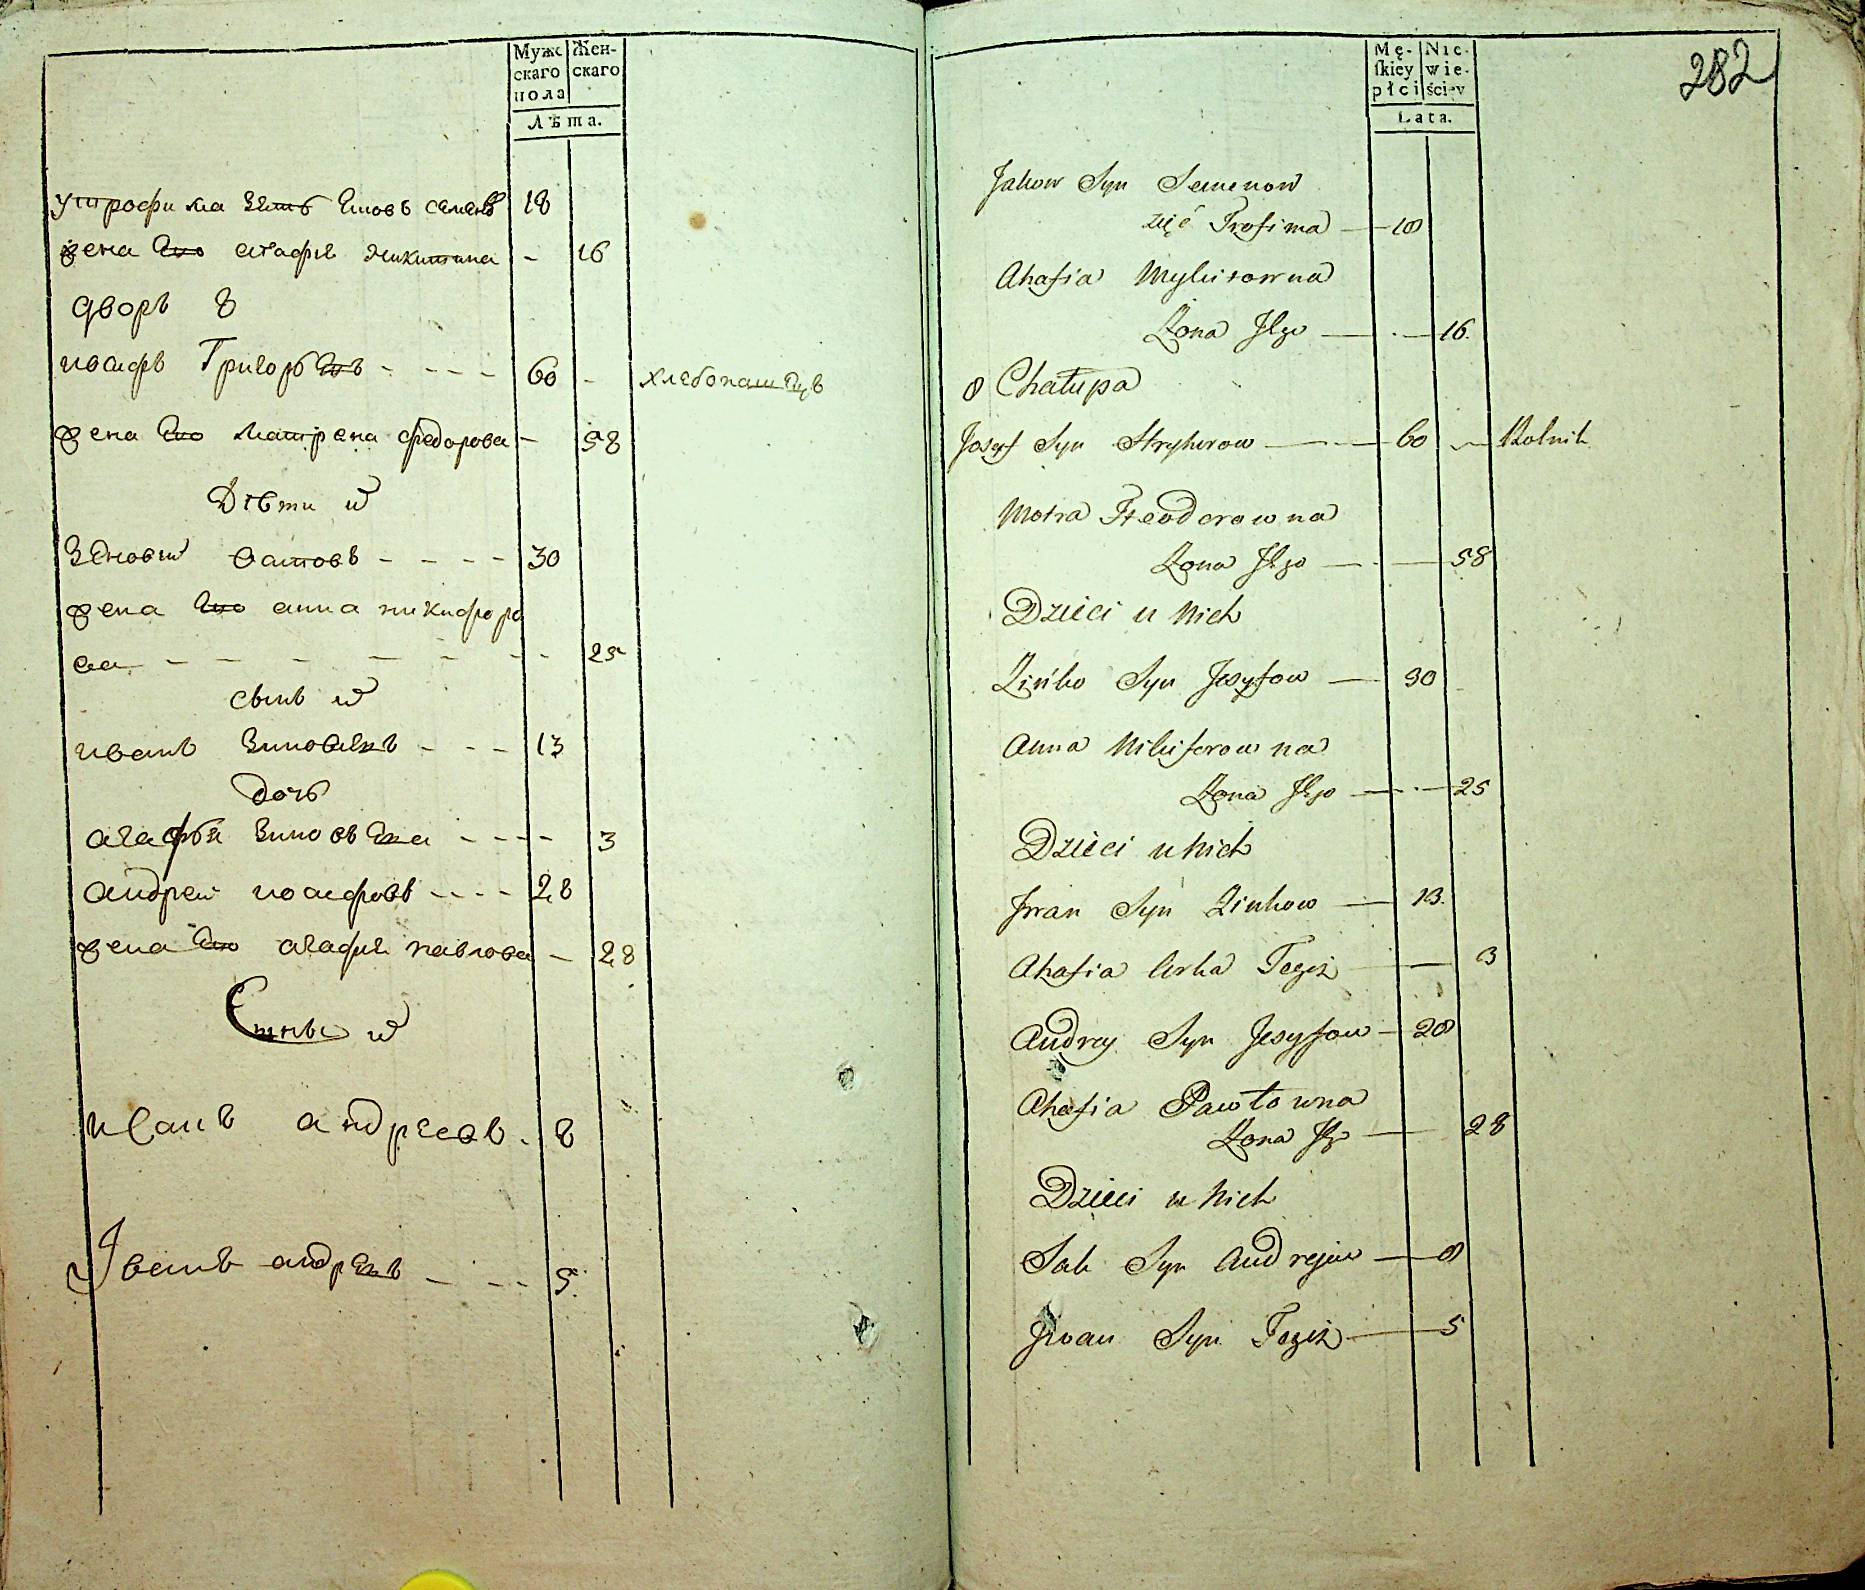 Мужс
скаго
пола
Жен-
скаго
Лѣта.
у трофима зять Яковъ семеновъ 18
жена его агафия Никитина - 16
дворъ 8
иосифъ Григорьевъ - - - - 60 - хлебопашецъ
жена его матрена федорова - 58
Дѣти и
Зеновий - - - - 30
жена его анна никифоро
ва - - - - - - - 25
сынъ и
иванъ Зиновьевъ - - - 13
дочь
агафья Зиновьева - - - - 3
андрей иосифовъ - - - - 28
жена его агафия павлова - 28
андреевъ - 8
Иванъ андреевъ - - - - 5
282
Mę-
skiey
płci
Nie-
wie-
ściey
Lata.
Jakow Syn Semenow
zięć Trofima — 18
Ahafia Mykitowna
Żona Jego — · — 16
8 Chałupa
Josyf Syn Hryhorow — · — 60 — Rolnik
Motra Fteodorowna
Żona Jego — · — 58
Dzieci u Nich
Zińko Syn Josyfow — 30
Anna Nikiforowna
Żona Jego — · — 25
Dzieci u Nich
Jwan Syn Zinkow — 13
Ahafia Corka Tegoż — 3
Andrey Syn Josyfow — 28
Ahafia Pawłowna
Żona Jego — 28
Dzieci u Nich
Syn Andrejow — 8
Jwan Syn Tegoż — 5